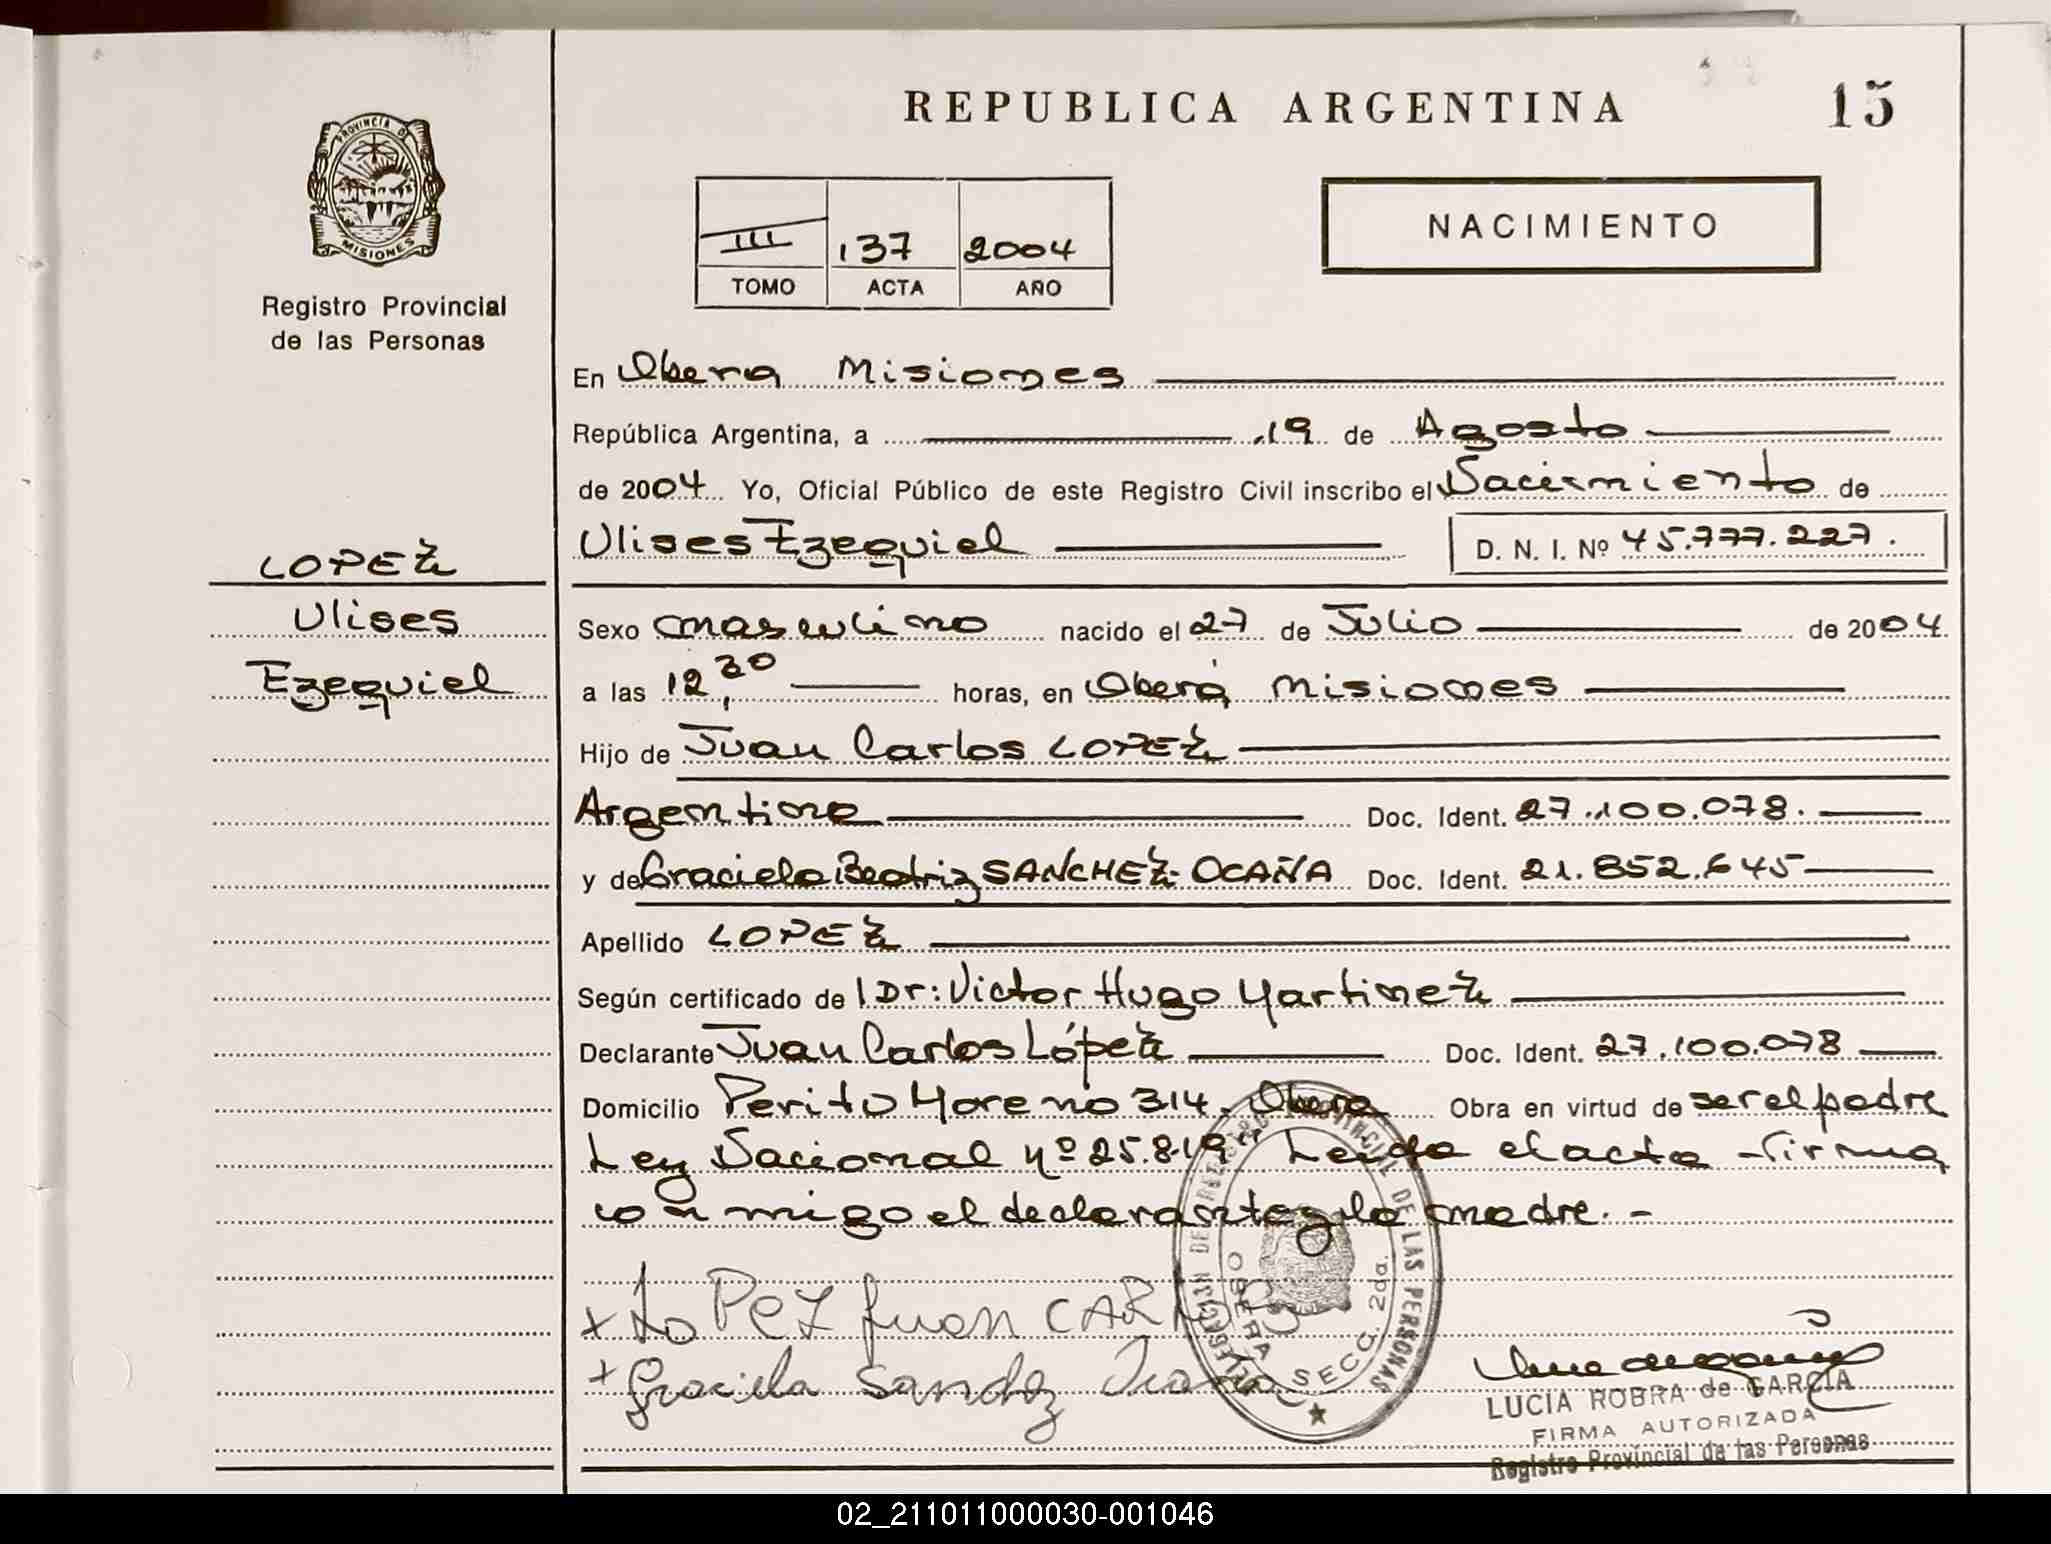 REPUBLICA ARGENTINA
15
PROVINCIA DE
MISIONES
Registro Provincial
de las Personas
III 137 2004
TOMO ACTA AÑO
NACIMIENTO
En Obera Misiones
República Argentina, a 19 de Agosto
de 2004 Yo, Oficial Público de este Registro Civil inscribo el Nacimiento de
Ulises Ezequiel D. N. I. Nº 45.777.227.
LOPEZ
Ulises
Ezequiel
Sexo masculino nacido el 27 de Julio de 2004
a las 12,30 horas, en Oberá Misiones
Hijo de Juan Carlos LOPEZ
Argentino Doc. Ident. 27.100.078.
y de Graciela Beatriz SANCHEZ OCAÑA Doc. Ident. 21.852.645
Apellido LOPEZ
Según certificado de l Dr: Victor Hugo Martinez
Declarante Juan Carlos López Doc. Ident. 27.100.078
Domicilio Perito Moreno 314. Obera Obra en virtud de ser el padre
Ley Nacional Nº 25.819" Leida el acta firma
conmigo el declarante y la madre.-
DELEGACION DE REGISTRO PROVINCIAL DE LAS PERSONAS
OBERA SECC. 2da.
x LOPEZ Juan CARLOS
+ Graciela Sanchez Ocaña
LUCIA ROBRA de GARCIA
FIRMA AUTORIZADA
Registro Provincial de las Personas
02_211011000030-001046